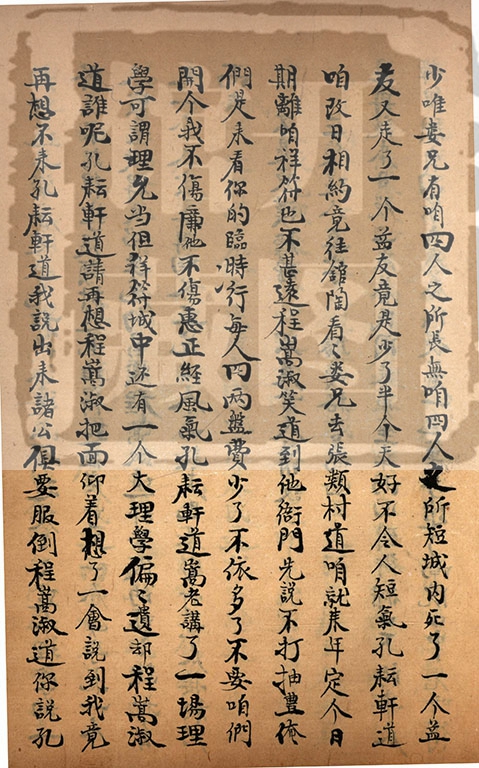 少唯婁兄有咱四人之所長無咱四人之所短城内死了一个益
友又走了一个益友竟是少了半个天好不令人短氣孔耘軒道
咱改日相約竟往舘陶看看婁兄去張類村道咱就來年定个日
期離咱祥符也不甚遠程嵩淑笑道到他衙門先說不打抽豊俺
們是来看你的臨時行每人四兩盤費少了不依多了不要咱們
開个我不傷廉他不傷惠正經風氣孔耘軒道嵩老講了一塲理
學可謂理允當但祥符城中还有一个大理學偏偏遺却程嵩淑
道誰呢孔耘軒道請再想程嵩淑把面仰着想了一會說到我竟
再想不来孔耘軒道我說出来諸公俱要服倒程嵩淑道你說孔